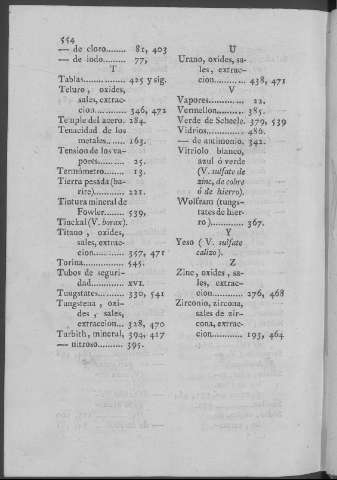 554
— de cloro......... 81, 403
— de iodo......... 77,
T
Tablas............... 425 y sig.
Teluro, oxides,
sales, extrac-
cion........... 346, 472
Temple del acero. 284.
Tenacidad de los
metales....... 163.
Tension de los va-
pores........... 25.
Termómetro....... 13.
Tierra pesada (ba-
rite)............ 221.
Tintura mineral de
Fowler......... 539,
Tinckal (V. borax).
Titano, oxides,
sales, extrac-
cion............ 357, 471
Torina............... 545.
Tubos de seguri-
dad............ XVI.
Tungstates.......... 330, 541
Tungstena, oxi-
des, sales,
extraccion... 328, 470
Turbith, mineral, 394, 417
— nitroso.......... 395.
U
Urano, oxides, sa-
les, extrac-
cion............ 438, 471
V
Vapores............. 22.
Vermellon.......... 385.
Verde de Scheele. 379, 539
Vidrios.............. 486.
— de antimonio. 342.
Vitriolo blanco,
azul ó verde
(V. sulfate de
zinc, de cobre
ó de hierro).
Wolfram (tungs-
tates de hier-
ro)............ 367.
Y
Yeso (V. sulfate
calizo).
Z
Zinc, oxides, sa-
les, extrac-
cion............ 276, 468
Zirconio, zircona,
sales de zir-
cona, extrac-
cion............ 193, 464